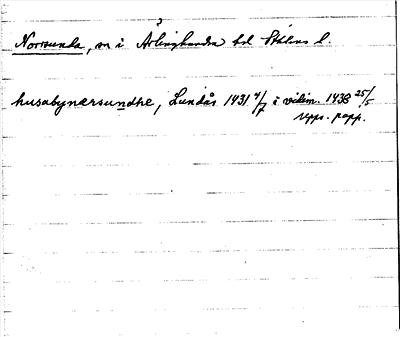 Norrsunda, sn i Ärlinghundra hd Sthlms l.
husabynærsundhe, Lundås 1431 4/7 i vidim. 1438 25/5
repr. papp.